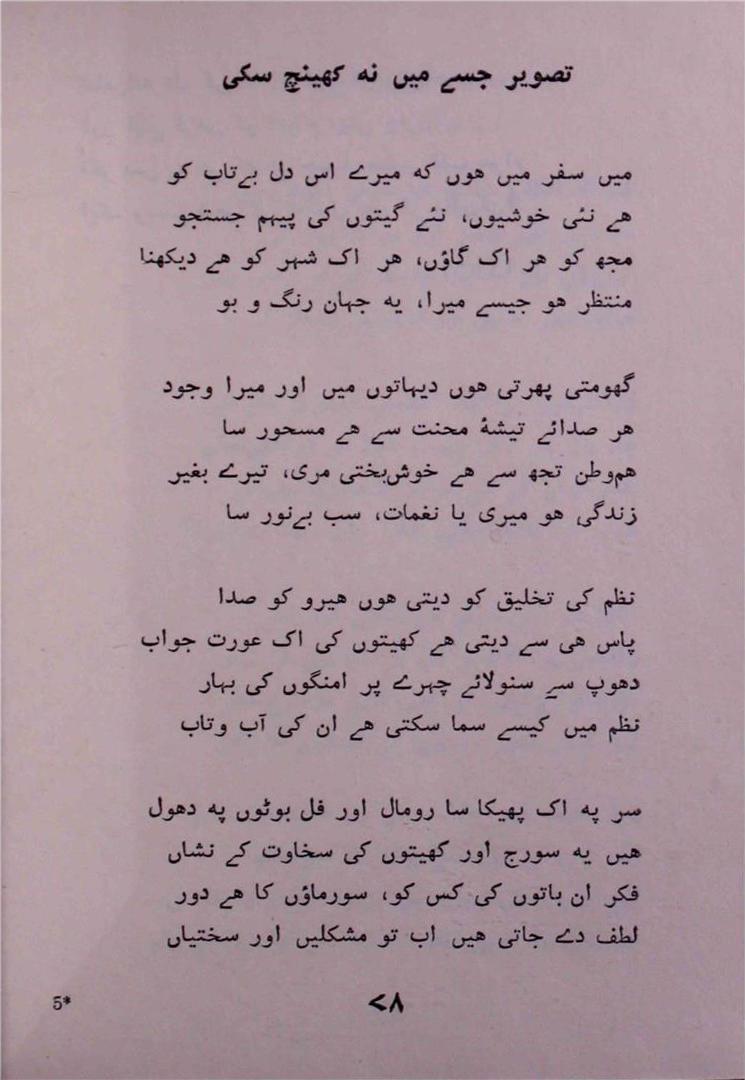 تصویر جسے میں نہ کھینچ سکی
میں سفر میں ھوں کہ میرے اس دل بےتاب کو
ھے نئی خوشیوں، نئے گیتوں کی پیہم جستجو
مجھ کو ھر اک گاؤں، ھر اک شہر کو ھے دیکھنا
منتظر ھو جیسے میرا، یہ جہان رنگ و بو
گھومتی پھرتی ھوں دیہاتوں میں اور میرا وجود
ھر صدائے تیشۂ محنت سے ھے مسحور سا
ھموطن تجھ سے ھے خوشبختی مری، تیرے بغیر
زندگی ھو میری یا نغمات، سب بےنور سا
نظم کی تخلیق کو دیتی ھوں ھیرو کو صدا
پاس ھی سے دیتی ھے کھیتوں کی اک عورت جواب
دھوپ سے سنولائے چہرے پر امنگوں کی بہار
نظم میں کیسے سما سکتی ھے ان کی آب وتاب
سر پہ اک پھیکا سا رومال اور فل بوٹوں پہ دھول
ھیں یہ سورج اور کھیتوں کی سخاوت کے نشاں
فکر ان باتوں کی کس کو، سورماؤں کا ھے دور
لطف دے جاتی ھیں اب تو مشکلیں اور سختیاں
5* ۷۸